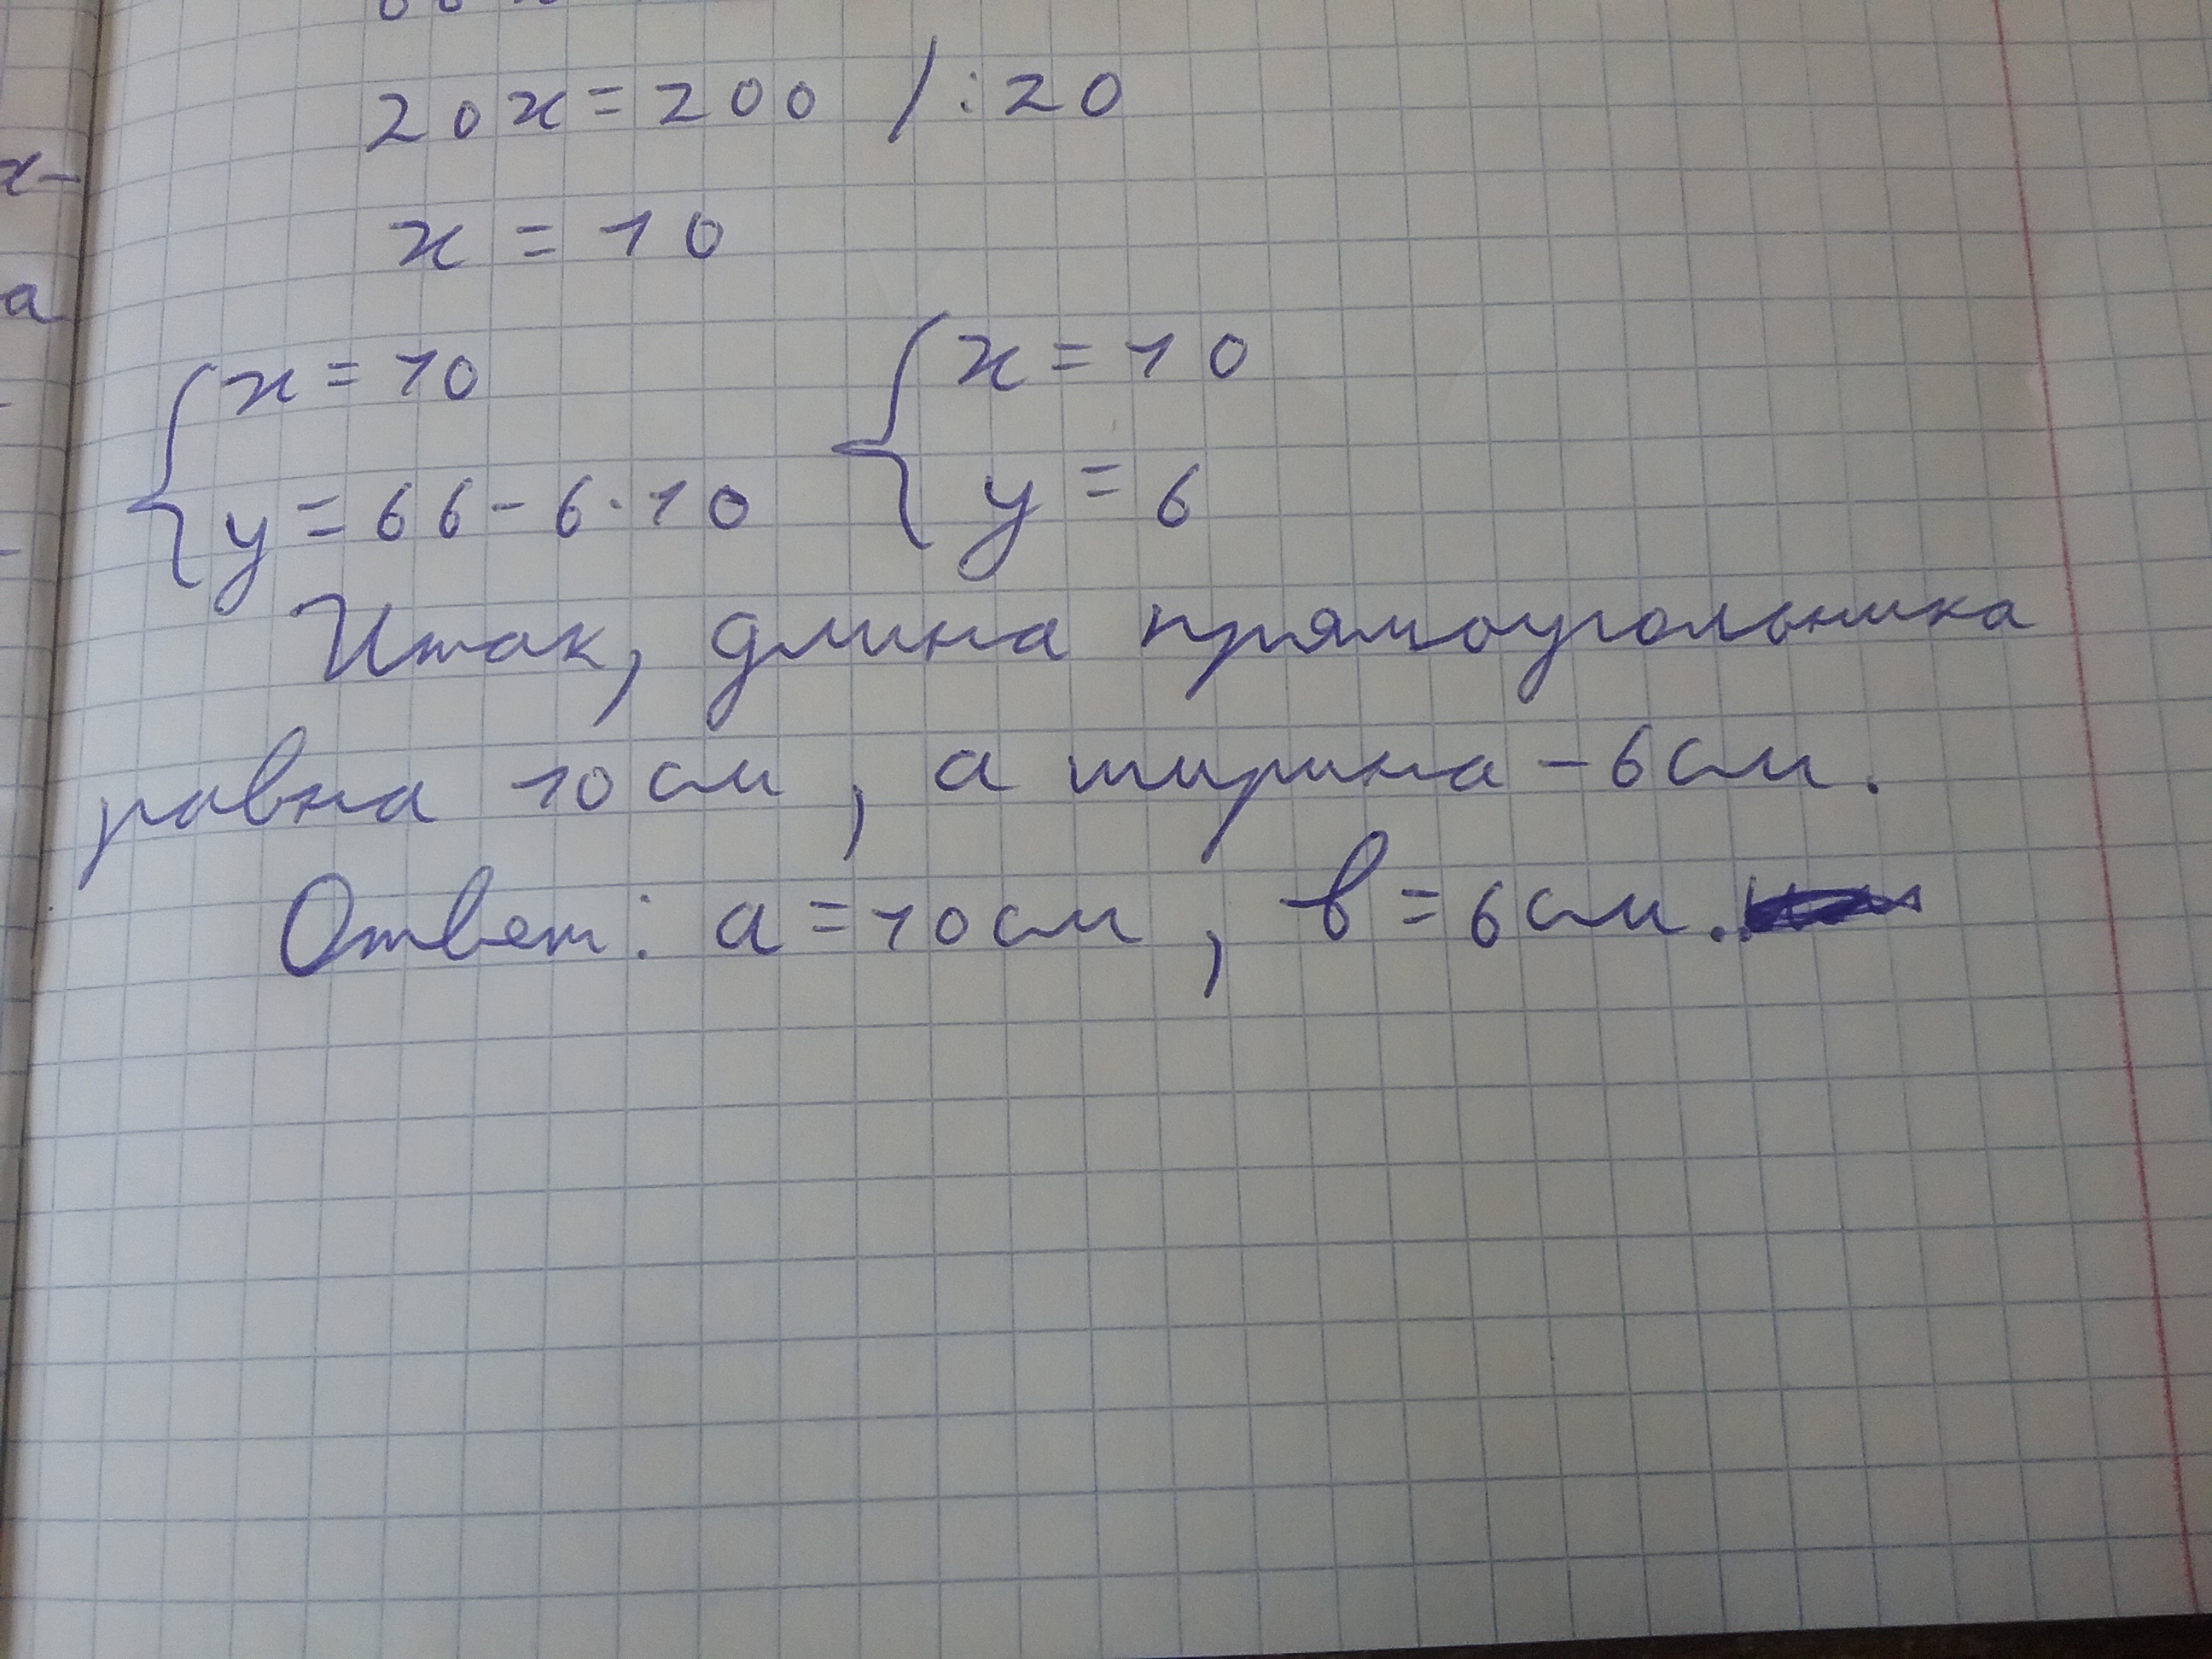 20x = 200 /:20
x = 10
{ x = 10 { x = 10
y = 66 - 6·10 y = 6
Итак, длина прямоугольника
равна 10 см, а ширина - 6 см.
Ответ: a = 10 см, b = 6 см.
x-
a